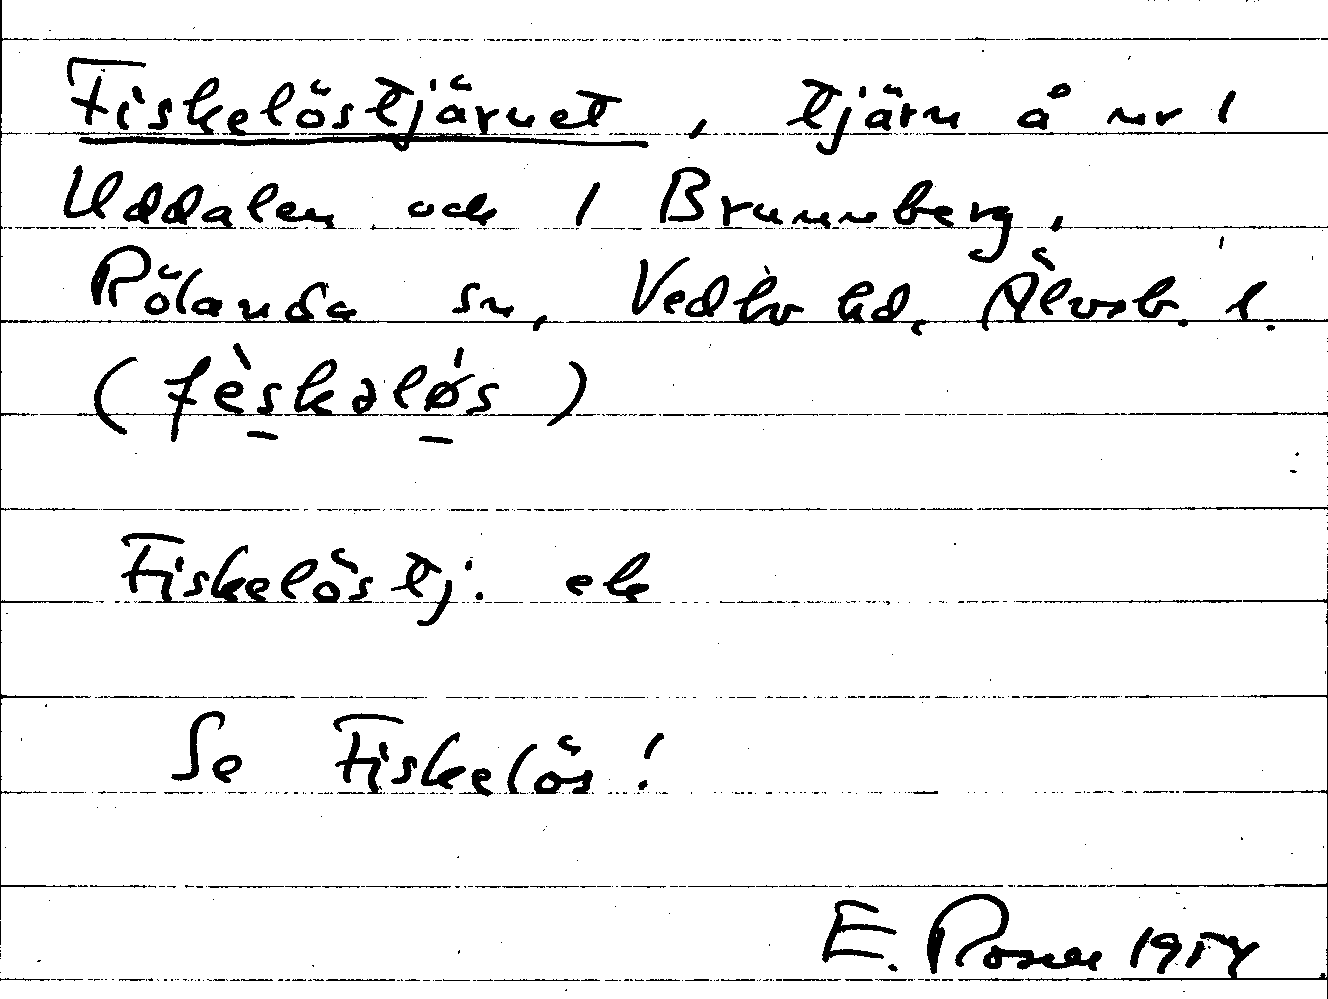 Fiskelöstjärnet, tjärn å nr 1
Uddalen och 1 Brunnberg,
Rölanda sn, Vedbo hd, Älvsb. l.
(fèskəløs)
Fiskelöstj. ek
Se Fiskelös!
E. Rosell 1954